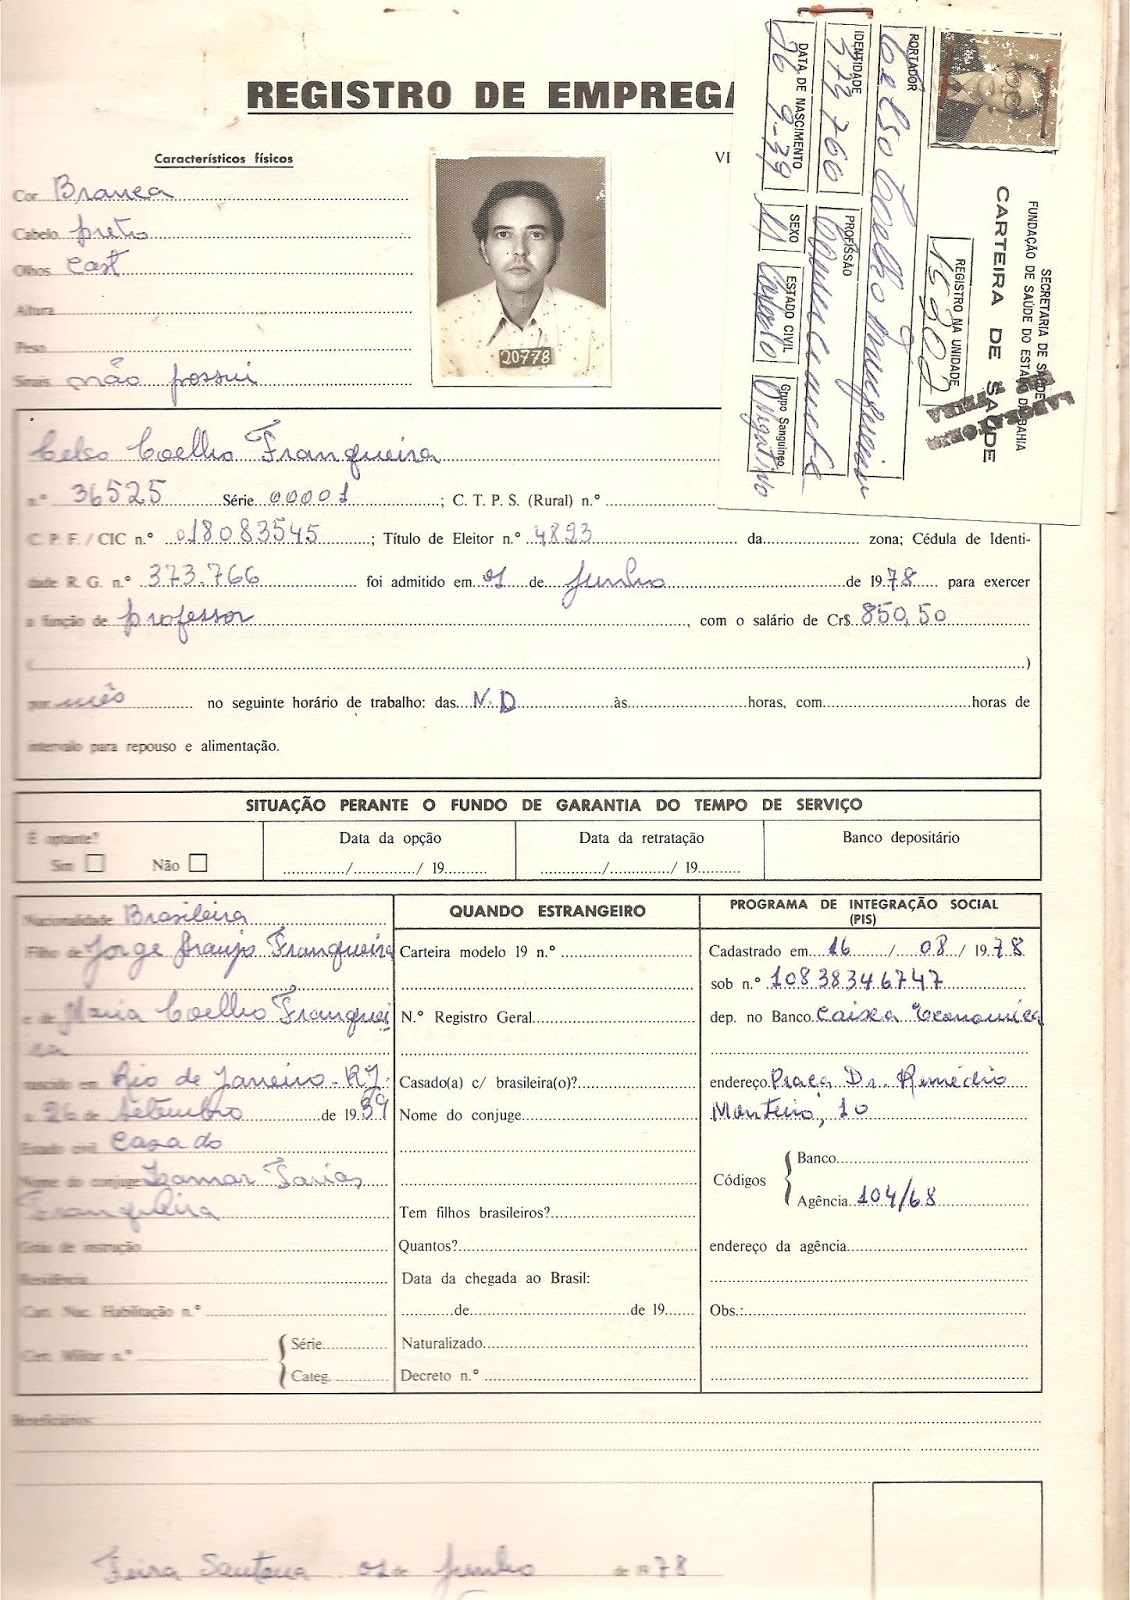 REGISTRO DE EMPREGA
Característicos físicos
VI
Cor Branca
Cabelo preto
Olhos cast
Altura
Peso
Sinais não possui
20778
SECRETARIA DE SAÚDE
FUNDAÇÃO DE SAÚDE DO ESTADO DA BAHIA
CARTEIRA DE SAÚDE
REGISTRO NA UNIDADE
15302
PORTADOR
Celso Coelho
IDENTIDADE
373766
PROFISSÃO
Comerciante
DATA DE NASCIMENTO
26 9-39
SEXO
M
ESTADO CIVIL
Casado
Grupo Sanguineo
O Negativo
Celso Coelho Franqueira
n.º 36525 Série 00001; C. T. P. S. (Rural) n.º
C. P. F. / CIC n.º 018083545; Título de Eleitor n.º 4823 da zona; Cédula de Identi-
dade R. G. n.º 373.766 foi admitido em 01 de junho de 1978 para exercer
a função de professor, com o salário de Cr$ 850,50
( )
por mês no seguinte horário de trabalho: das N.D às horas, com horas de
intervalo para repouso e alimentação.
SITUAÇÃO PERANTE O FUNDO DE GARANTIA DO TEMPO DE SERVIÇO
É optante?
Sim Não
Data da opção
/ / 19
Data da retratação
/ / 19
Banco depositário
Nacionalidade Brasileira
Filho de Jorge Araujo Franqueira
e de Maria Coelho Franquei
ra
nascido em Rio de Janeiro - RJ.
a 26 de Setembro de 1939
Estado civil Casado
Nome do conjuge Izamar Farias
Franqueira
Gráu de instrução
Residência
Cart. Nac. Habilitação n.º
Cert. Militar n.º
Série
Categ.
QUANDO ESTRANGEIRO
Carteira modelo 19 n.º
N.º Registro Geral
Casado(a) c/ brasileira(o)?
Nome do conjuge
Tem filhos brasileiros?
Quantos?
Data da chegada ao Brasil:
de de 19
Naturalizado
Decreto n.º
PROGRAMA DE INTEGRAÇÃO SOCIAL
(PIS)
Cadastrado em 16 / 08 / 1978
sob n.º 10838346747
dep. no Banco Caixa Economica
endereço Praça Dr. Remédio
Monteiro, 10
Códigos
Banco
Agência 104/68
endereço da agência
Obs.:
Beneficiários:
Feira Santana 01 de Junho de 1978